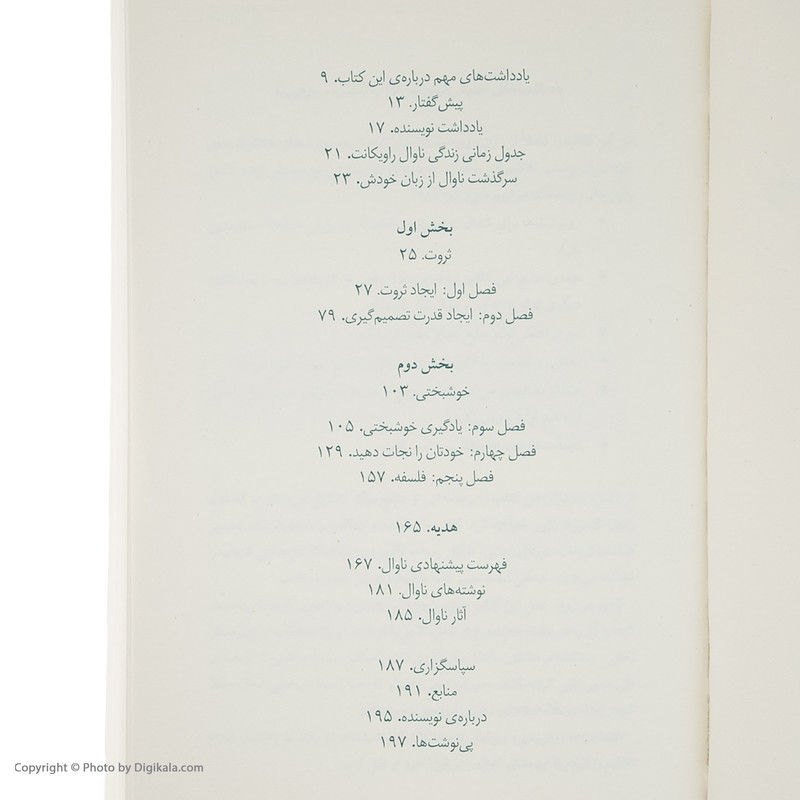 یادداشت‌های مهم درباره‌ی این کتاب. ۹
پیش‌گفتار. ۱۳
یادداشت نویسنده. ۱۷
جدول زمانی زندگی ناوال راویکانت. ۲۱
سرگذشت ناوال از زبان خودش. ۲۳
بخش اول
ثروت. ۲۵
فصل اول: ایجاد ثروت. ۲۷
فصل دوم: ایجاد قدرت تصمیم‌گیری. ۷۹
بخش دوم
خوشبختی. ۱۰۳
فصل سوم: یادگیری خوشبختی. ۱۰۵
فصل چهارم: خودتان را نجات دهید. ۱۲۹
فصل پنجم: فلسفه. ۱۵۷
هدیه. ۱۶۵
فهرست پیشنهادی ناوال. ۱۶۷
نوشته‌های ناوال. ۱۸۱
آثار ناوال. ۱۸۵
سپاسگزاری. ۱۸۷
منابع. ۱۹۱
درباره‌ی نویسنده. ۱۹۵
پی‌نوشت‌ها. ۱۹۷
Copyright © Photo by Digikala.com